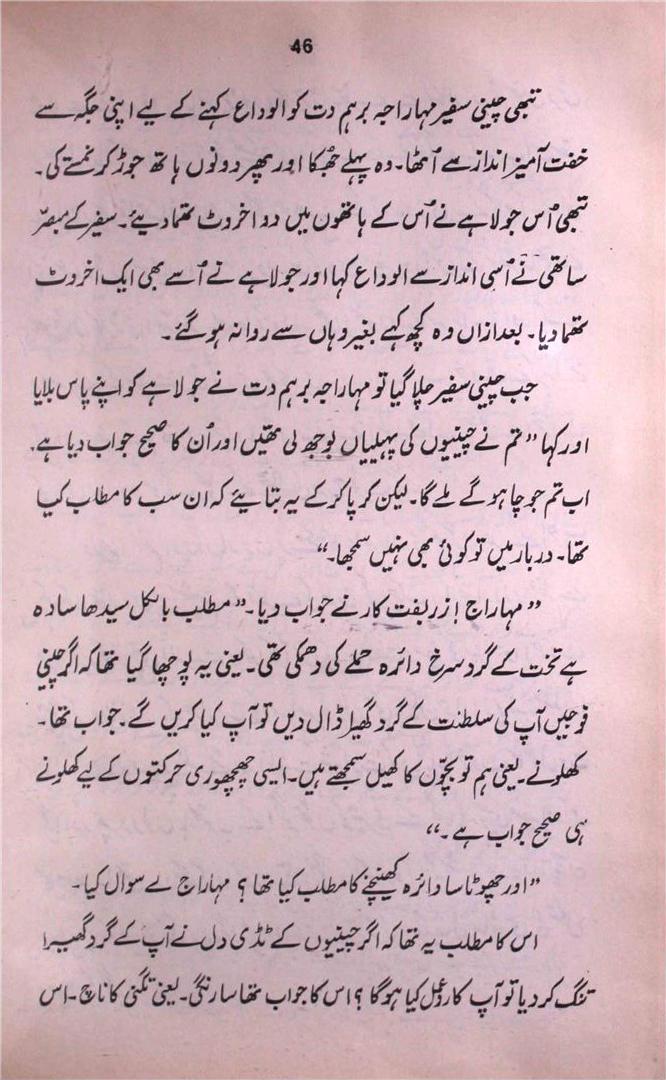 46
تبھی چینی سفیر مہاراجہ برہم دت کو الوداع کہنے کے لیے اپنی جگہ سے
خفت آمیز انداز سے اُٹھا۔ وہ پہلے جُھکا اور پھر دونوں ہاتھ جوڑ کر نمستے کی۔
تبھی اُس جولاہے نے اُس کے ہاتھوں میں دو اخروٹ تھما دیئے۔ سفیر کے مبصّر
ساتھی نے اُسی انداز سے الوداع کہا اور جولاہے نے اُسے بھی ایک اخروٹ
تھما دیا۔ بعدازاں وہ کچھ کہے بغیر وہاں سے روانہ ہو گئے۔
جب چینی سفیر چلا گیا تو مہاراجہ برہم دت نے جولاہے کو اپنے پاس بلایا
اور کہا ”تم نے چینیوں کی پہیلیاں بوجھ لی تھیں اور اُن کا صحیح جواب دیا ہے۔
اب تم جو چاہو گے ملے گا۔ لیکن کرپا کر کے یہ بتایئے کہ ان سب کا مطلب کیا
تھا۔ دربار میں تو کوئی بھی نہیں سمجھا۔“
”مہاراج! زربفت کار نے جواب دیا۔ ”مطلب بالکل سیدھا سادہ
ہے تخت کے گرد سرخ دائرہ حملے کی دھمکی تھی۔ یعنی یہ پوچھا گیا تھا کہ اگر چینی
فوجیں آپ کی سلطنت کے گرد گھیرا ڈال دیں تو آپ کیا کریں گے۔ جواب تھا۔
کھلونے۔ یعنی ہم تو بچّوں کا کھیل سمجھتے ہیں۔ ایسی چھچھوری حرکتوں کے لیے کھلونے
ہی صحیح جواب ہے۔“
”اور چھوٹا سا دائرہ کھینچنے کا مطلب کیا تھا؟ مہاراج نے سوال کیا۔
اس کا مطلب یہ تھا کہ اگر چینیوں کے ٹڈی دل نے آپ کے گرد گھیرا
تنگ کر دیا تو آپ کا ردعمل کیا ہوگا؟ اس کا جواب تھا سارنگی۔ یعنی تگنی کا ناچ۔ اس